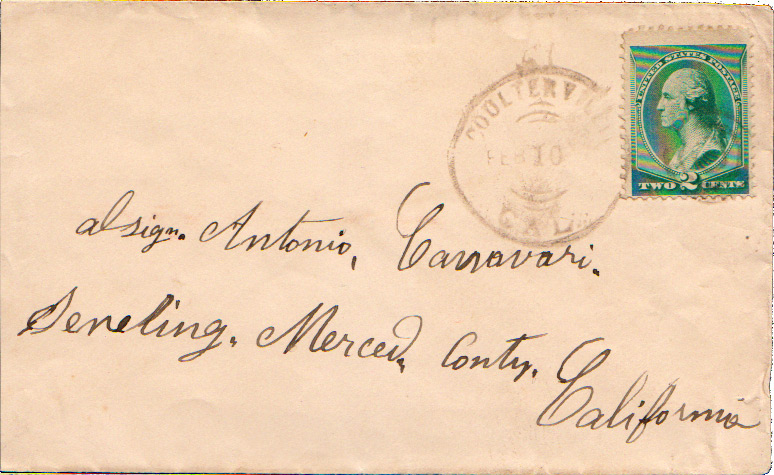 UNITED STATES POSTAGE
TWO 2 CENTS
COULTERVILLE
FEB 10
CAL
al sign. Antonio, Canavari.
Seneling. Merced, Conty.
California